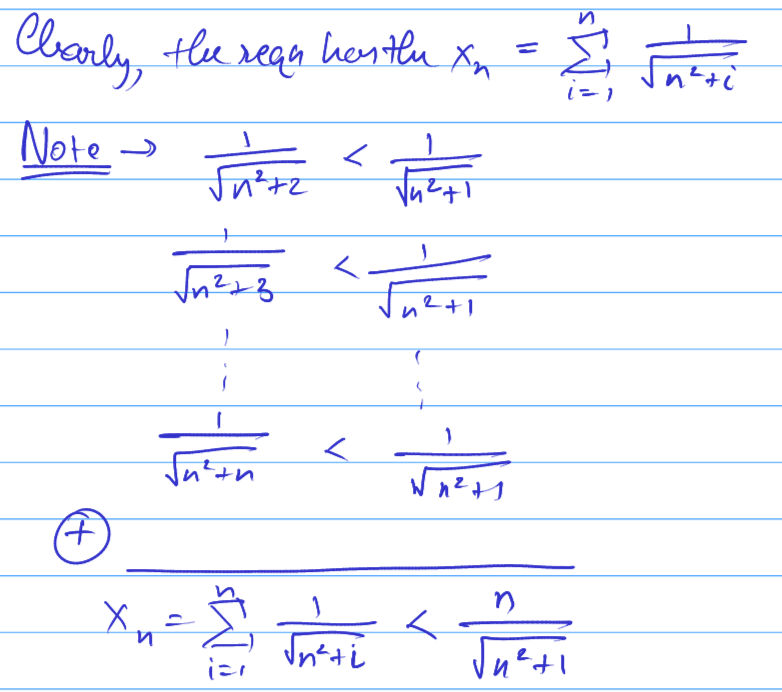 Clearly, the seqn has the xₙ = Σ_{i=1}^{n} 1/√(n²+i)
Note → 1/√(n²+2) < 1/√(n²+1)
1/√(n²+3) < 1/√(n²+1)
⋮ ⋮
1/√(n²+n) < 1/√(n²+1)
⊕
xₙ = Σ_{i=1}^{n} 1/√(n²+i) < n/√(n²+1)